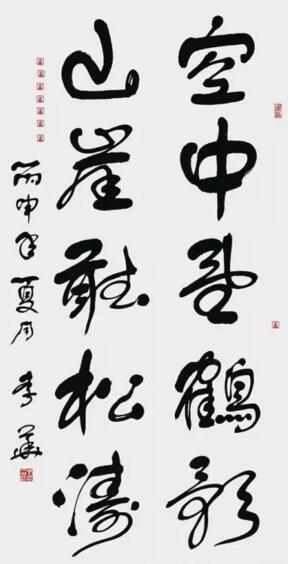 空中望鶴影
山崖聽松濤
丙申年夏月 李華